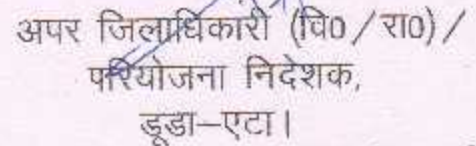 अपर जिलाधिकारी (वि0/रा0)/
परियोजना निदेशक,
डूडा–एटा।